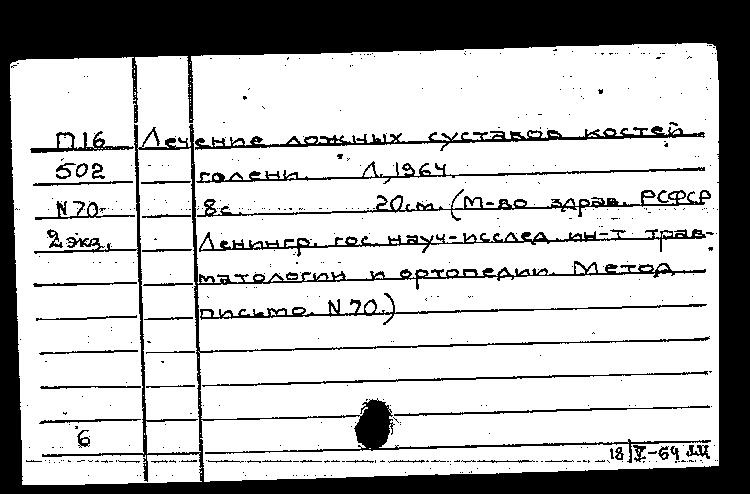 П16 Лечение ложных суставов костей
502 голени. Л., 1964.
N70 8с. 20см. (М-во здрав. РСФСР
2 экз. Ленингр. гос. науч-исслед. ин-т трав-
матологии и ортопедии. Метод
письмо. N70.)
6
18/V-64